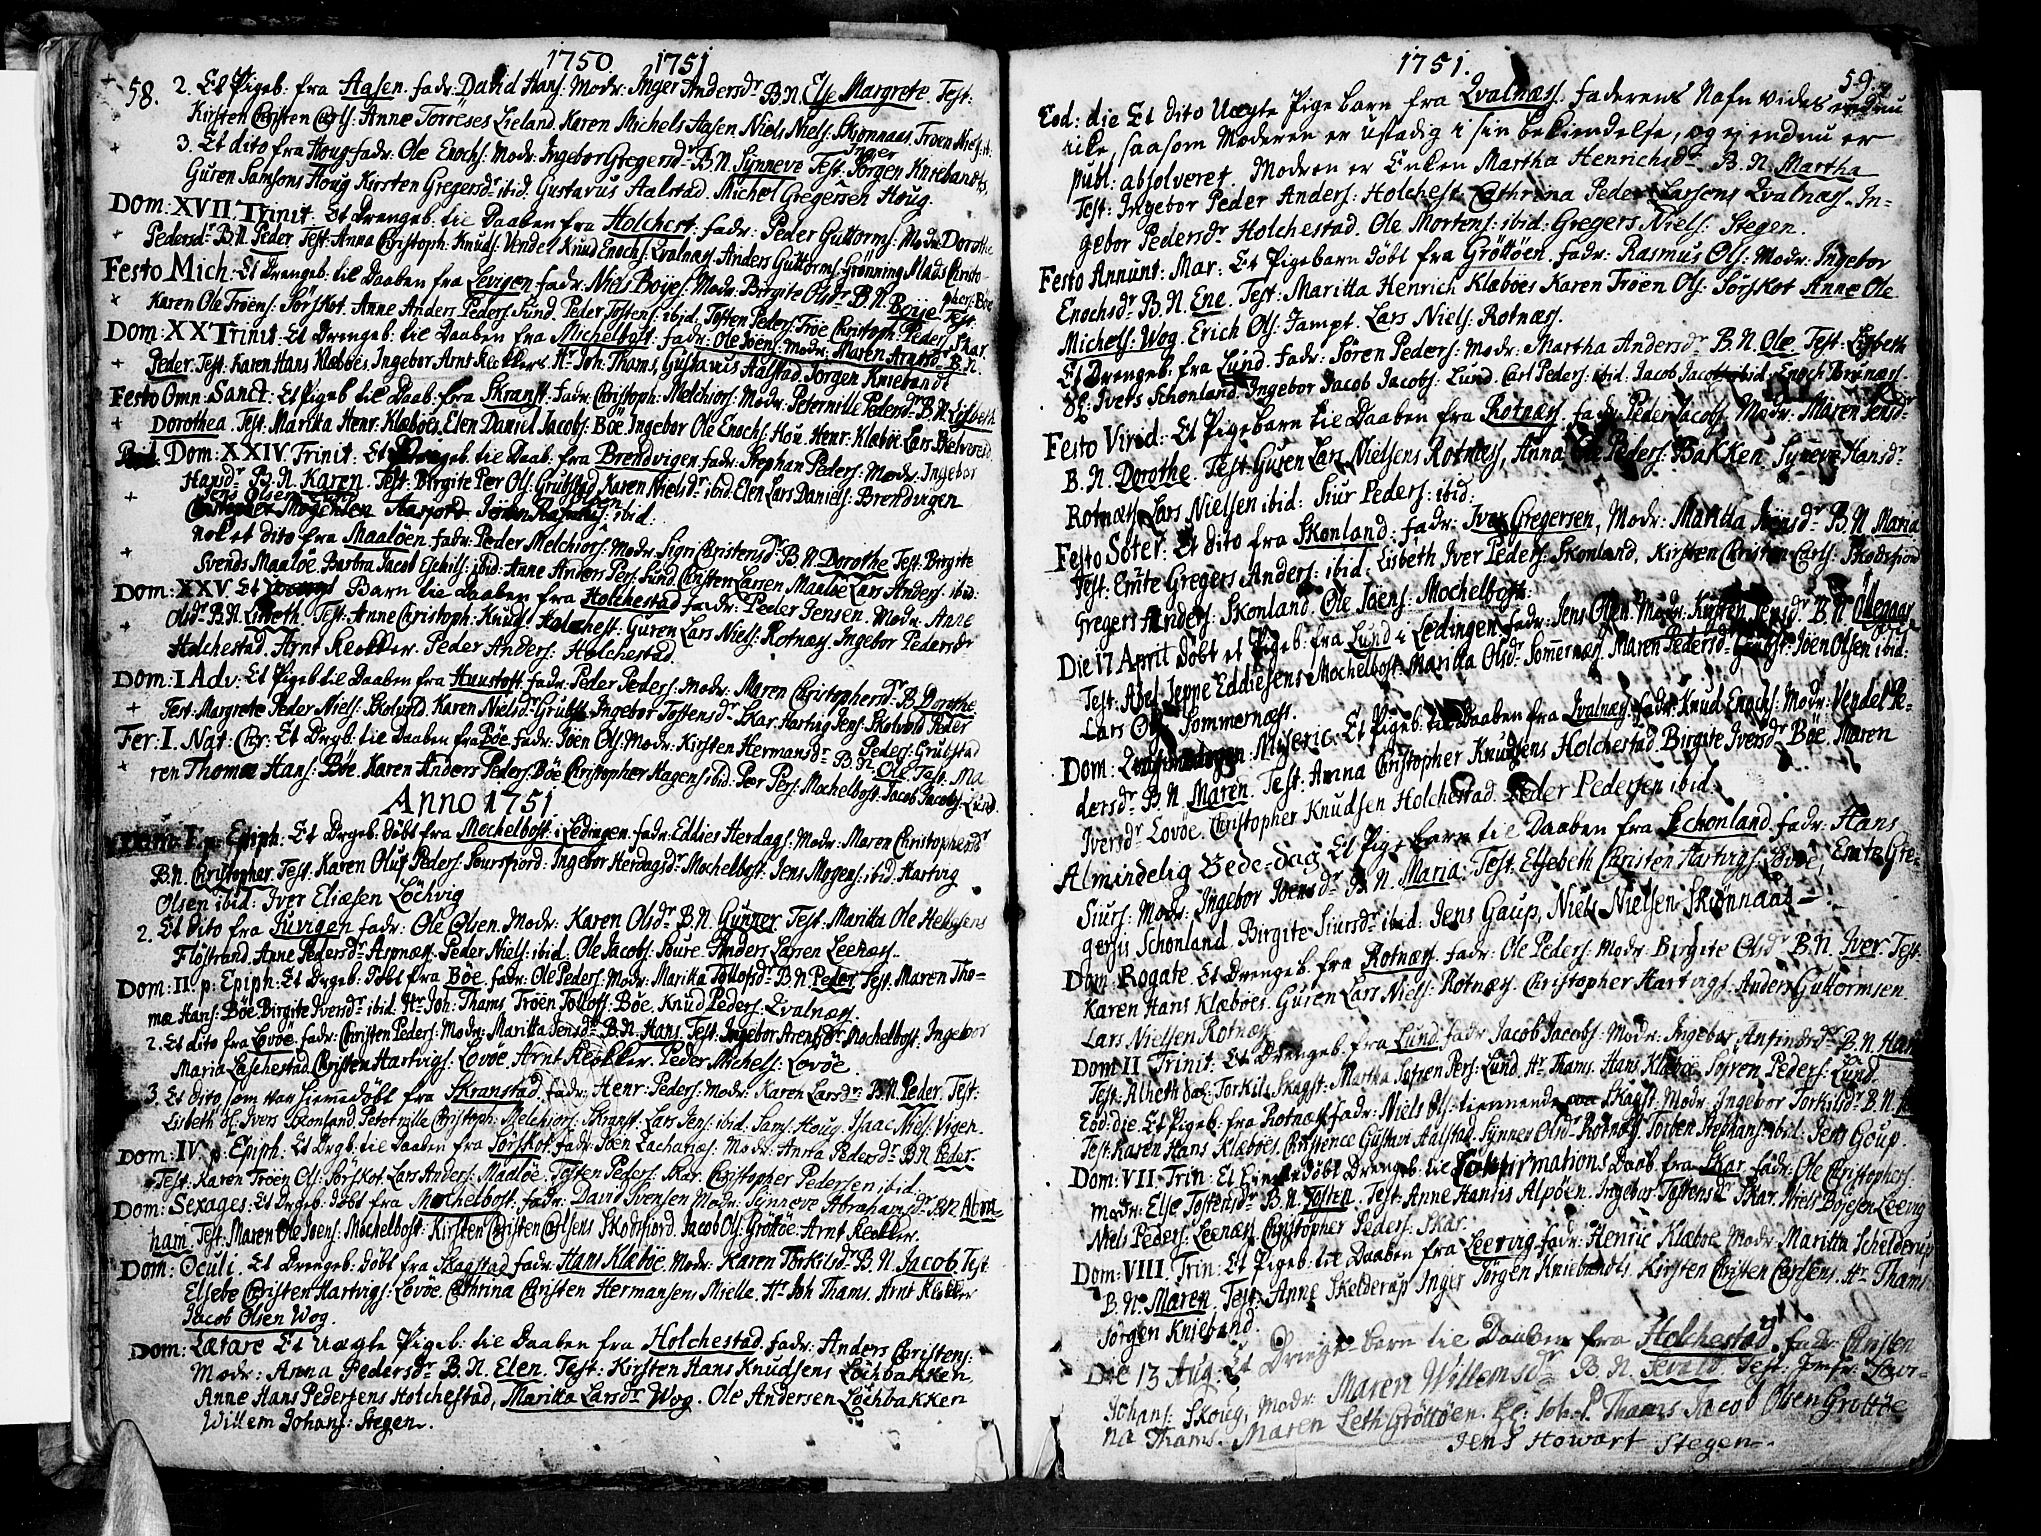 1750 1751
58. 2. Et Pigeb: fra Aasen. fadr: David Hans: Modr: Inger Andersdr B.N. Else Margrete. Test:
Kirsten Christen Carls: Anne Torröses Lieland. Karen Michels Aasen Niels Niels: Skionnaas. Troen Niels:
3. Et dito fra Houg. fadr: Ole Enochs: Modr: Ingebor Gregersdr B.N. Synneve Test: Inger Jörgen Kniebandts,
Guren Samsons Houg Kirsten Gregersdr ibid: Gustavus Aalstad. Michel Gregersen Houg.
Dom: XVII. Trinit. Et Drengeb: til Daaben fra Holchest. fadr: Peder Guttorms: Modr: Dorothe
Pedersdr B.N. Peder Test: Anna Christoph: Knuds: Vendel Knud Enochs: Evalnæs. Anders Guttorms: Grönning Mads Christo-
Festo Mich: Et Drengeb: til Daaben fra Levigen fadr: Niels Böyes: Modr: Birgite Olsdr B.N. Böye. Test:
Karen Ole Tröens: Förskot. Anne Anders Peders: Sund. Peder Tostens: ibid. Tosten Peders: Tröe Christoph: Peders: Skar.
Dom: XX Trinit. Et Drengeb: til Daaben fra Michelbost. fadr: Ole Joens: Modr: Maren Arntsdr B.N.
Peder. Test: Karen Hans Klæböes, Ingebor Arnt Klokkers Hr Joh: Thams, Gustavus Aalstad. Jörgen Kniebandt
Festo Omn: Sanct: Et Pigeb: til Daab: fra Skranst. fadr: Christoph: Melchiors: Modr: Peternille Pedersdr B.N. Lisbeth
Dorothea. Test. Marika Henr: Klæböes. Elen Daniel Jacobs: Böe. Ingebor Ole Enochs: Hou. Henr: Klæböe Lars
Dom: XXIV. Trinit: Et Drengeb: til Daab: fra Brendvigen. fadr: Stephan Peders: Modr: Ingebor
Hansdr B.N. Karen. Test: Birgite Per Ols: Grubstad Karen Nielsdr ibid: Elen Lars Daniels: Brendvigen
Jens Olsen ibid:
Nok et dito fra Maalöen. fadr: Peder Melchiors: Modr: Sigri Christensdr B.N. Dorothe Test: Birgite
Svends Maalöe, Barbra Jacob Eskils: ibid: Anne Anders Pers: Sund. Christen Larsen Maalöe Lars Anders: ibid:
Dom: XXV. Et Barn til Daaben fra Holchestad. fadr: Peder Jensen. Modr: Anne
Olsdr B.N. Lisbeth. Test: Anne Christoph: Knuds: Holchest. Guren Lars Niels: Rotnæs. Ingebor Pedersdr
Holchestad. Arnt Klokker. Peder Anders: Holchestad.
Dom: I Adv: Et Pigeb: til Daaben fra Hunstoft. fadr: Peder Peders: Modr: Maren Christophersdr B. Dorothe
Test: Margrete Peder Niels: Skolund. Karen Nielsdr Grubst. Ingebor Tostensdr Skar. Hartvig Jens: Skolvold. Peder
Peders: Grubstad
Fer. I. Nat: Chr: Et Drgb: til Daaben fra Böe. fadr: Jöen Ols: Modr: Kirsten Hermansdr B.N. Ole Test. Ma
ren Thomæ Hans: Böe. Karen Anders Peders: Böe Christopher Hagens: ibid: Per Pers: Mochelbost. Jacob Jacobs: Lund.
Anno 1751
Dom: I. p: Epiph: Et Drgeb: döbt fra Mochelbost. i Lödingen. fadr: Eddies Herdags: Modr: Maren Christophersdr
B.N. Christopher. Test. Karen Oluf Peders: Soursfjord. Ingebor Herdagsdr Mochelbost. Jens Mogens: ibid. Hartvig
Olsen ibid: Iver Eliæsen Löchvig
2. Et dito fra Juvigen. fadr: Ole Olsen. Modr: Karen Olsdr B.N. Gunner. Test: Maritta Ole Hellesens
Flöstrand. Anne Pedersdr Aspnæs. Peder Niels: ibid. Ole Jacobs: Soure. Anders Larsen Leenæs.
Dom: II p: Epiph: Et Drgeb: döbt fra Böe. fadr: Ole Peders: Modr: Marika Tollofsdr B.N. Peder Test. Maren Tho-
mæ Hans: Böe Birgite Iversdr ibid. Hr Joh: Thams, Tröen Tollofs: Böe. Knud Peders: Evalnæs.
2. Et dito fra Lovöe. fadr: Christen Peders: Modr: Maritta Jensdr B.N. Hans. Test: Ingebor Arentsdr Mochelbost. Ingebor
Maria Laschestad. Christen Hartvigs: Lovöe. Arnt Klokker. Peder Michels: Lovöe.
3. Et dito som var hiemedöbt fra Skranstad. fadr: Henr: Peders: Modr: Karen Larsdr B.N. Peder. Test:
Lisbeth Sl: Ivers Skonland Peternille Christoph: Melchiors: Skranst: Lars Jens: ibid. Sams: Houg. Isaac Niels: Vigen.
Dom: IV p: Epiph: Et Drgb: til Daaben fra Förskot. fadr: Jöen Zacharias: Modr: Anna Pedersdr B.N. Peder.
Test. Karen Tröen Ols: Förskot. Lars Anders: Maalöe. Tosten Peders: Skar. Christopher Pedersen ibid.
Dom: Sexages: Et Drgeb: döbt fra Mochelbost. fadr: David Ivensen Modr: Synneve Abrahamsdr B.N. Abra-
ham. Test. Maren Ole Joens: Mochelbost. Kirsten Christen Carlsens Skodsfiord. Jacob Ols: Gröttöe. Arnt Klokker.
Dom: Oculi. Et Drengeb: döbt fra Skagstad. fadr: Hans Klæböe. Modr: Karen Torkilsdr B.N. Jacob. Test
Elsebe Christen Hartvigs: Lovöe. Cathrina Christen Hermansens Mielle. Hr Joh Thams. Arnt Klokker
Jacob Olsen Wog.
Dom: Lætare Et Uægte Pigeb: til Daaben fra Holchestad. fadr: Anders Christens:
Modr: Anna Pedersdr B.N. Elen. Test: Kirsten Hans Knudsens Löchbakken.
Anne Hans Pedersens Holchestad, Maritta Larsdr Wog. Ole Andersen Löchbakken
Willem Johans: Stegen.
1751.
59.
Eod: die Et dito Uægte Pigebarn fra Evalnæs. Faderens Nafn vides endnu
icke, saasom Moderen er Ustadig i sin bekiendelse, og ej endnu er
publ: absolveret. Modren er Enken Martha Henrichsdr B.N. Martha
Test: Ingebor Peder Anders: Holchest. Cathrina Peder Larsens Evalnæs. In-
gebor Pedersdr Holchestad. Ole Mortens: ibid: Gregers Niels: Stegen.
Festo Annunt: Mar: Et Pigebarn döbt fra Gröttöen. fadr: Rasmus Ols: Modr: Ingebor
Enochsdr B.N. Ene. Test: Maritta Henrich Klæböes Karen Tröen Ols: Förskot Anne Ole
Michels: Wog. Erich Ols: Jampt. Lars Niels: Rotnæs.
Et Drengeb: fra Lund. fadr: Sören Peders: Modr: Martha Andersdr B.N. Ole. Test: Lisbeth
Sl: Ivers Schonland. Ingebor Jacob Jacobs: Lund. Carl Peders: ibid. Jacob Jacobs: ibid. Enoch
Festo Virid: Et Pigebarn til Daaben fra Rotnæs. fadr: Peder Jacobs: Modr: Maren Jensdr
B.N. Dorothe. Test: Guren Lars Nielsens Rotnæs, Anna Ole Peders: Bakken Syneve Hansdr
Rotnæs. Lars Nielsen ibid: Siur Peders: ibid:
Festo Soter: Et dito fra Skonland. fadr: Iver Gregersen, Modr: Maritta Jönsdr B.N. Maria
Test: Emte Gregers Anders: ibid: Lisbeth Iver Peders: Skonland, Kirsten Christen Carls: Skodsfiord
Gregers Anders: Skonland. Ole Joens: Mochelbost.
Die 17 April döbt et Pigeb: fra Lund i Lödingen. fadr: Jens Olsen. Modr: Kirsten Jensdr B.N. Ödegaar
Test: Abel Jeppe Eddiesens Mochelbost. Maritta Olsdr Somernæs. Maren Pedersdr Joen Olsen ibid:
Lars Ols: Sommernæss.
Dom: Miseric: Et Pigeb: til Daaben fra Evalnæs. fadr: Knud Enochs: Modr: Vendel Pe-
dersdr B.N. Maren. Test: Anna Christopher Knudsens Holchestad. Birgite Iversdr Böe. Maren
Iversdr Lovöe. Christopher Knudsen Holchestad. Peder Pedersen ibid.
Almindelig Bede-dag Et Pige barn til Daaben fra Schonland. fadr: Hans
Siurs: Modr: Ingebor Joensdr B.N. Maria. Test: Elsebeth Christen Hartvigs: Lovöe, Emte Gre-
gersis Schonland. Birgite Siursdr ibid. Jens Gaup, Niels Nielsen Skiönnaas.
Dom: Rogate. Et Drengeb: fra Rotnæs. fadr: Ole Peders: Modr: Birgite Olsdr B.N. Iver Test.
Karen Hans Klæböes. Guren Lars Niels: Rotnæs. Christopher Hartvigs: Anders Guttormsen
Lars Nielsen Rotnæs
Dom II Trinit: Et Drengeb: fra Lund. fadr: Jacob Jacobs: Modr: Ingebor Anfindsdr B.N. Hans
Test: Alheth Torkils Skagst. Martha Söfren Pers: Lund. Hr Thams. Hans Klæböe. Söfren Peders: Lund.
Eod: die. Et Pigeb: fra Rotnæs fadr: Niels Ols: tiennende Skagst. Modr: Ingebor Torkilsdr B.N.
Test: Karen Hans Klæböes. Christence Gustavi Aalstad. Synner Olsdr Rotnæs. Torben Stephans: ibid. Jens Goup.
Dom: VII. Trin: Et hiemedöbt Drengeb: til Confirmations Daab fra Skar. fadr: Ole Christophers:
modr: Else Tostensdr B.N. Tosten. Test: Anne Hannis Alpöen. Ingebor Tostensdr Skar. Niels Böyesen Leevig
Niels Peders: Leenæs. Christopher Peders: Skar.
Dom: VIII. Trin: Et Pigeb: til Daaben fra Leervig. fadr: Henric Klæboe Modr: Maritta Schelderup
B.N. Maren. Test: Anne Skelderup Inger Jörgen Kniebandts Kirsten Christen Carlsens. Hr Thams
Jörgen Knieband.
Die 13 Aug: Et Drenge-barn til Daaben fra Holchestad. fadr: Christen
Johans: Skoug, Modr: Maren Willemsdr B.N. Sevald Test: Jomfr:
na Thams. Maren Leth Gröttöen. Hr: Joh: P. Thams Jacob Olsen Gröttöe
Jens Howart Stegen.